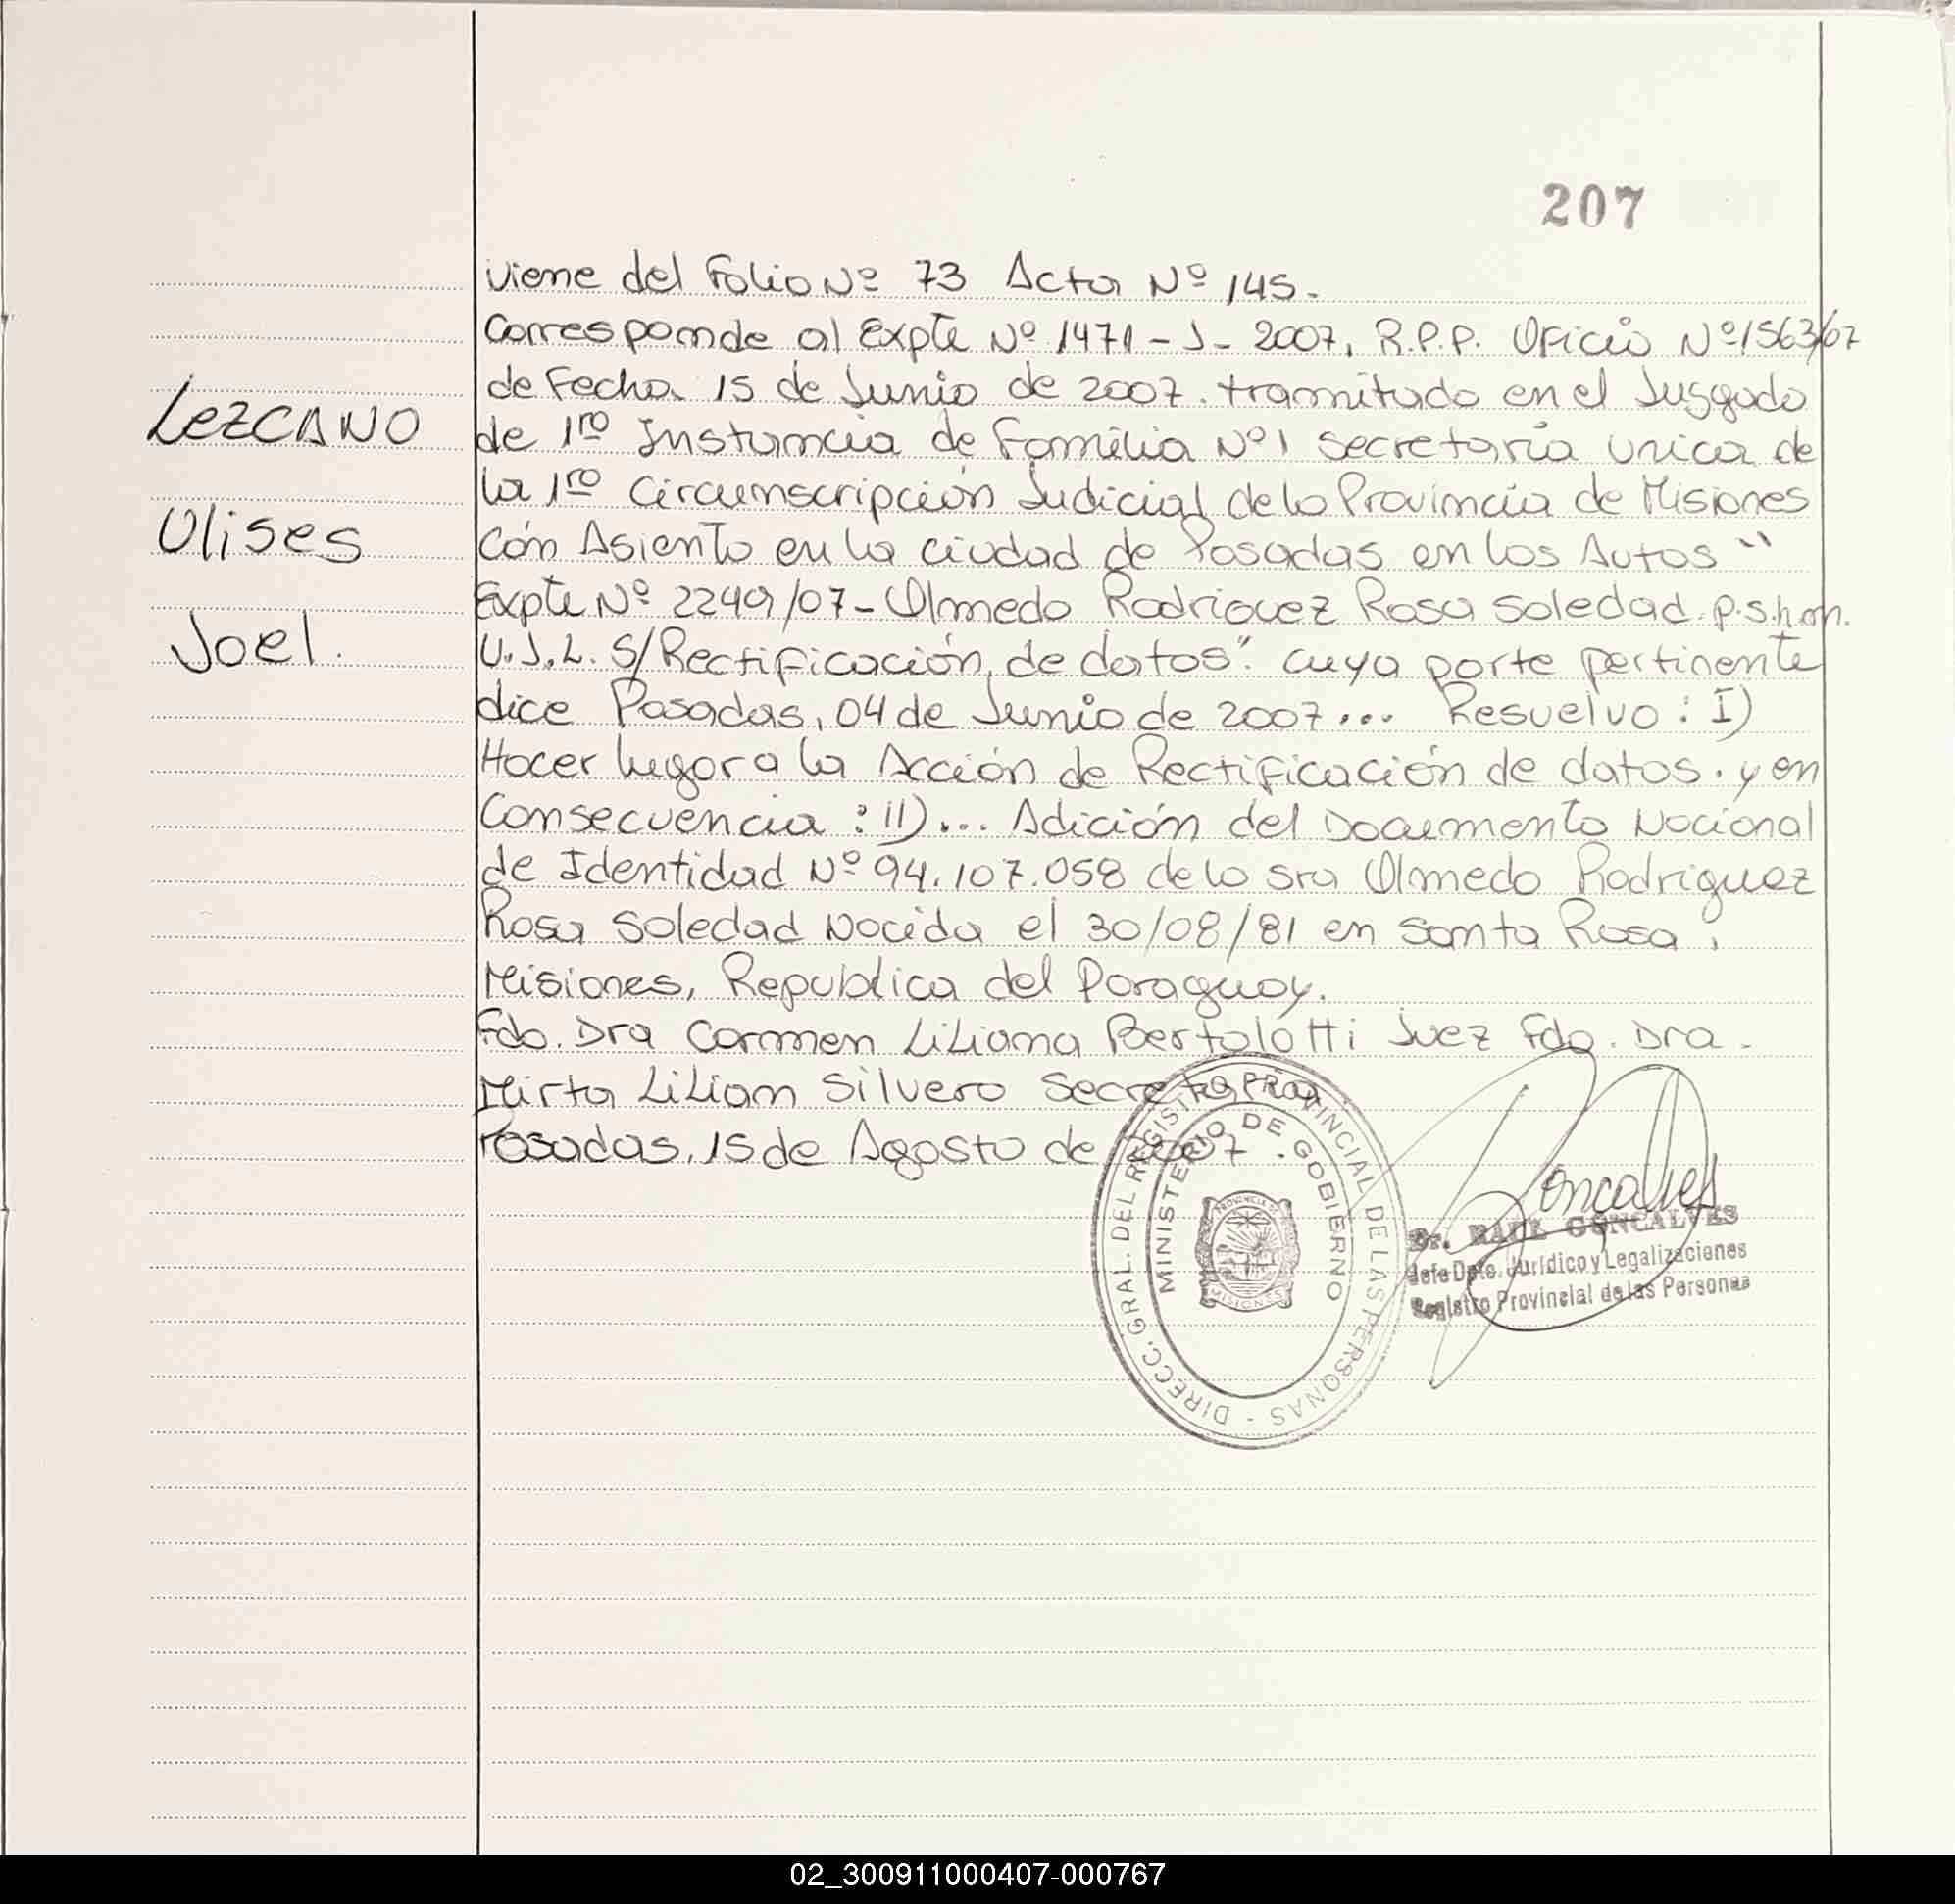 207
Viene del Folio Nº 73 Acta Nº 145.
Corresponde al Expte Nº 1471 - J - 2007, R.P.P. Oficio Nº 1563/07
de Fecha 15 de Junio de 2007. tramitado en el Jusgado
LEZCANO
de 1ra Instancia de Familia Nº 1 secretaría Unica de
la 1ra Circunscripción Judicial de la Provincia de Misiones
Ulises
Cón Asiento en la ciudad de Posadas en los Autos "
Expte Nº 2249/07 - Olmedo Rodriguez Rosa Soledad p.s.h.m.
Joel.
U.J.L. S/Rectificación de datos". cuya parte pertinente
dice Posadas, 04 de Junio de 2007... Resuelvo: I)
Hacer lugar a la Acción de Rectificación de datos. y en
Consecuencia: II)... Adición del Documento Nacional
de Identidad Nº 94.107.058 de la sra Olmedo Rodriguez
Rosa Soledad Nacida el 30/08/81 en Santa Rosa,
Misiones, Republica del Paraguay.
Fdo. Dra Carmen Liliana Bertolotti Juez Fdo. Dra.
Mirta Liliam Silvero Secretaria
Posadas, 15 de Agosto de 2007.
DIRECC. GRAL. DEL REGISTRO PROVINCIAL DE LAS PERSONAS -
MINISTERIO DE GOBIERNO
PROVINCIA DE
MISIONES
Goncalves
Dr. RAUL GONCALVES
Jefe Dpto. Jurídico y Legalizaciones
Registro Provincial de las Personas
02_300911000407-000767